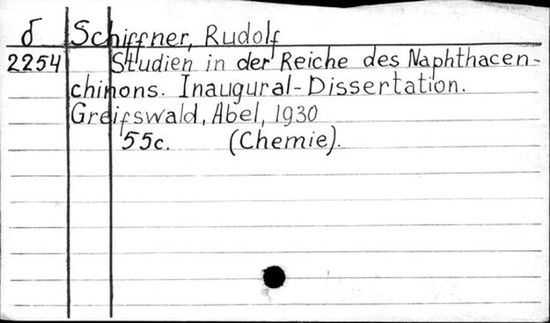 δ Schiffner, Rudolf
2254 Studien in der Reiche des Naphthacen-
chinons. Inaugural-Dissertation.
Greifswald, Abel, 1930
55c. (Chemie).